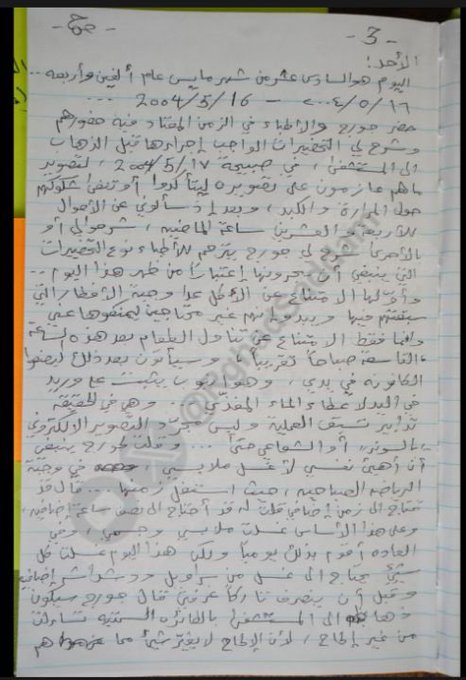 - 3 -
الأحد!
اليوم هو السادس عشر من شهر مايس عام ألفين وأربعه ...
٢٠٠٤/٥/١٦ - 2004/5/16 ....
حضر جورج والأطباء في الزمن المعتاد فيه حضورهم
وشرح لي التحضيرات الواجب إجراءها قبل الذهاب
الى المستشفى، في صبيحة 2004/5/17، لتصوير
ما هم عازمون على تصويره ليتأكدوا أو تنفى شكوكهم
حول المرارة والكبد، وبعد إذ سألوني عن الأحوال
للأربعة والعشرين ساعة الماضيه، شرحوا لي أو
بالأحرى شرح لي جورج يترجم للأطباء نوع التحضيرات
التي ينبغي أن يجرونها إعتباراً من ظهر هذا اليوم ..
وأولها الامتناع عن الأكل عدا وجبة الأفطار التي
سبقتهم فيها ويبدو أنهم غير محتاجين ليمنعوها عني
وانما فقط الامتناع عن تناول الطعام بعد هذه الساعة
التاسعة صباحاً تقريباً، وسيأتون بعد ذلك ليضعوا
الكانونه في يدي، وهو انبوب يثبت على وريد
في اليد لاعطاء الماء المغذي ... وهي في الحقيقة
تدابير تسبق العملية وليس مجرد التصوير الالكتروني
بالسونر، أو الشعاعي حتى ... وقلت لجورج ينبغي
أن أهيئ نفسي لأغسل ملابسي، في وجبة
الرياضه الصباحيه، حيث استغل زمنها ... قال قد
تحتاج الى زمن إضافي قلت له قد أحتاج الى نصف ساعة إضافيه،
وعلى هذا الأساس غسلت ملابسي وجسمي، وفي
العاده أقوم بذلك يومياً ولكن هذا اليوم غسلت كل
شيئ يحتاج الى غسل من سراويل ودشداشه إضافيه
وقبل أن ينصرف تاركاً غرفتي قال جورج سيكون
ذهابك الى المستشفى بالطائره السمتيه تساءلت
من غير إلحاح، لأن الإلحاح لا يغير شيئاً مما هم